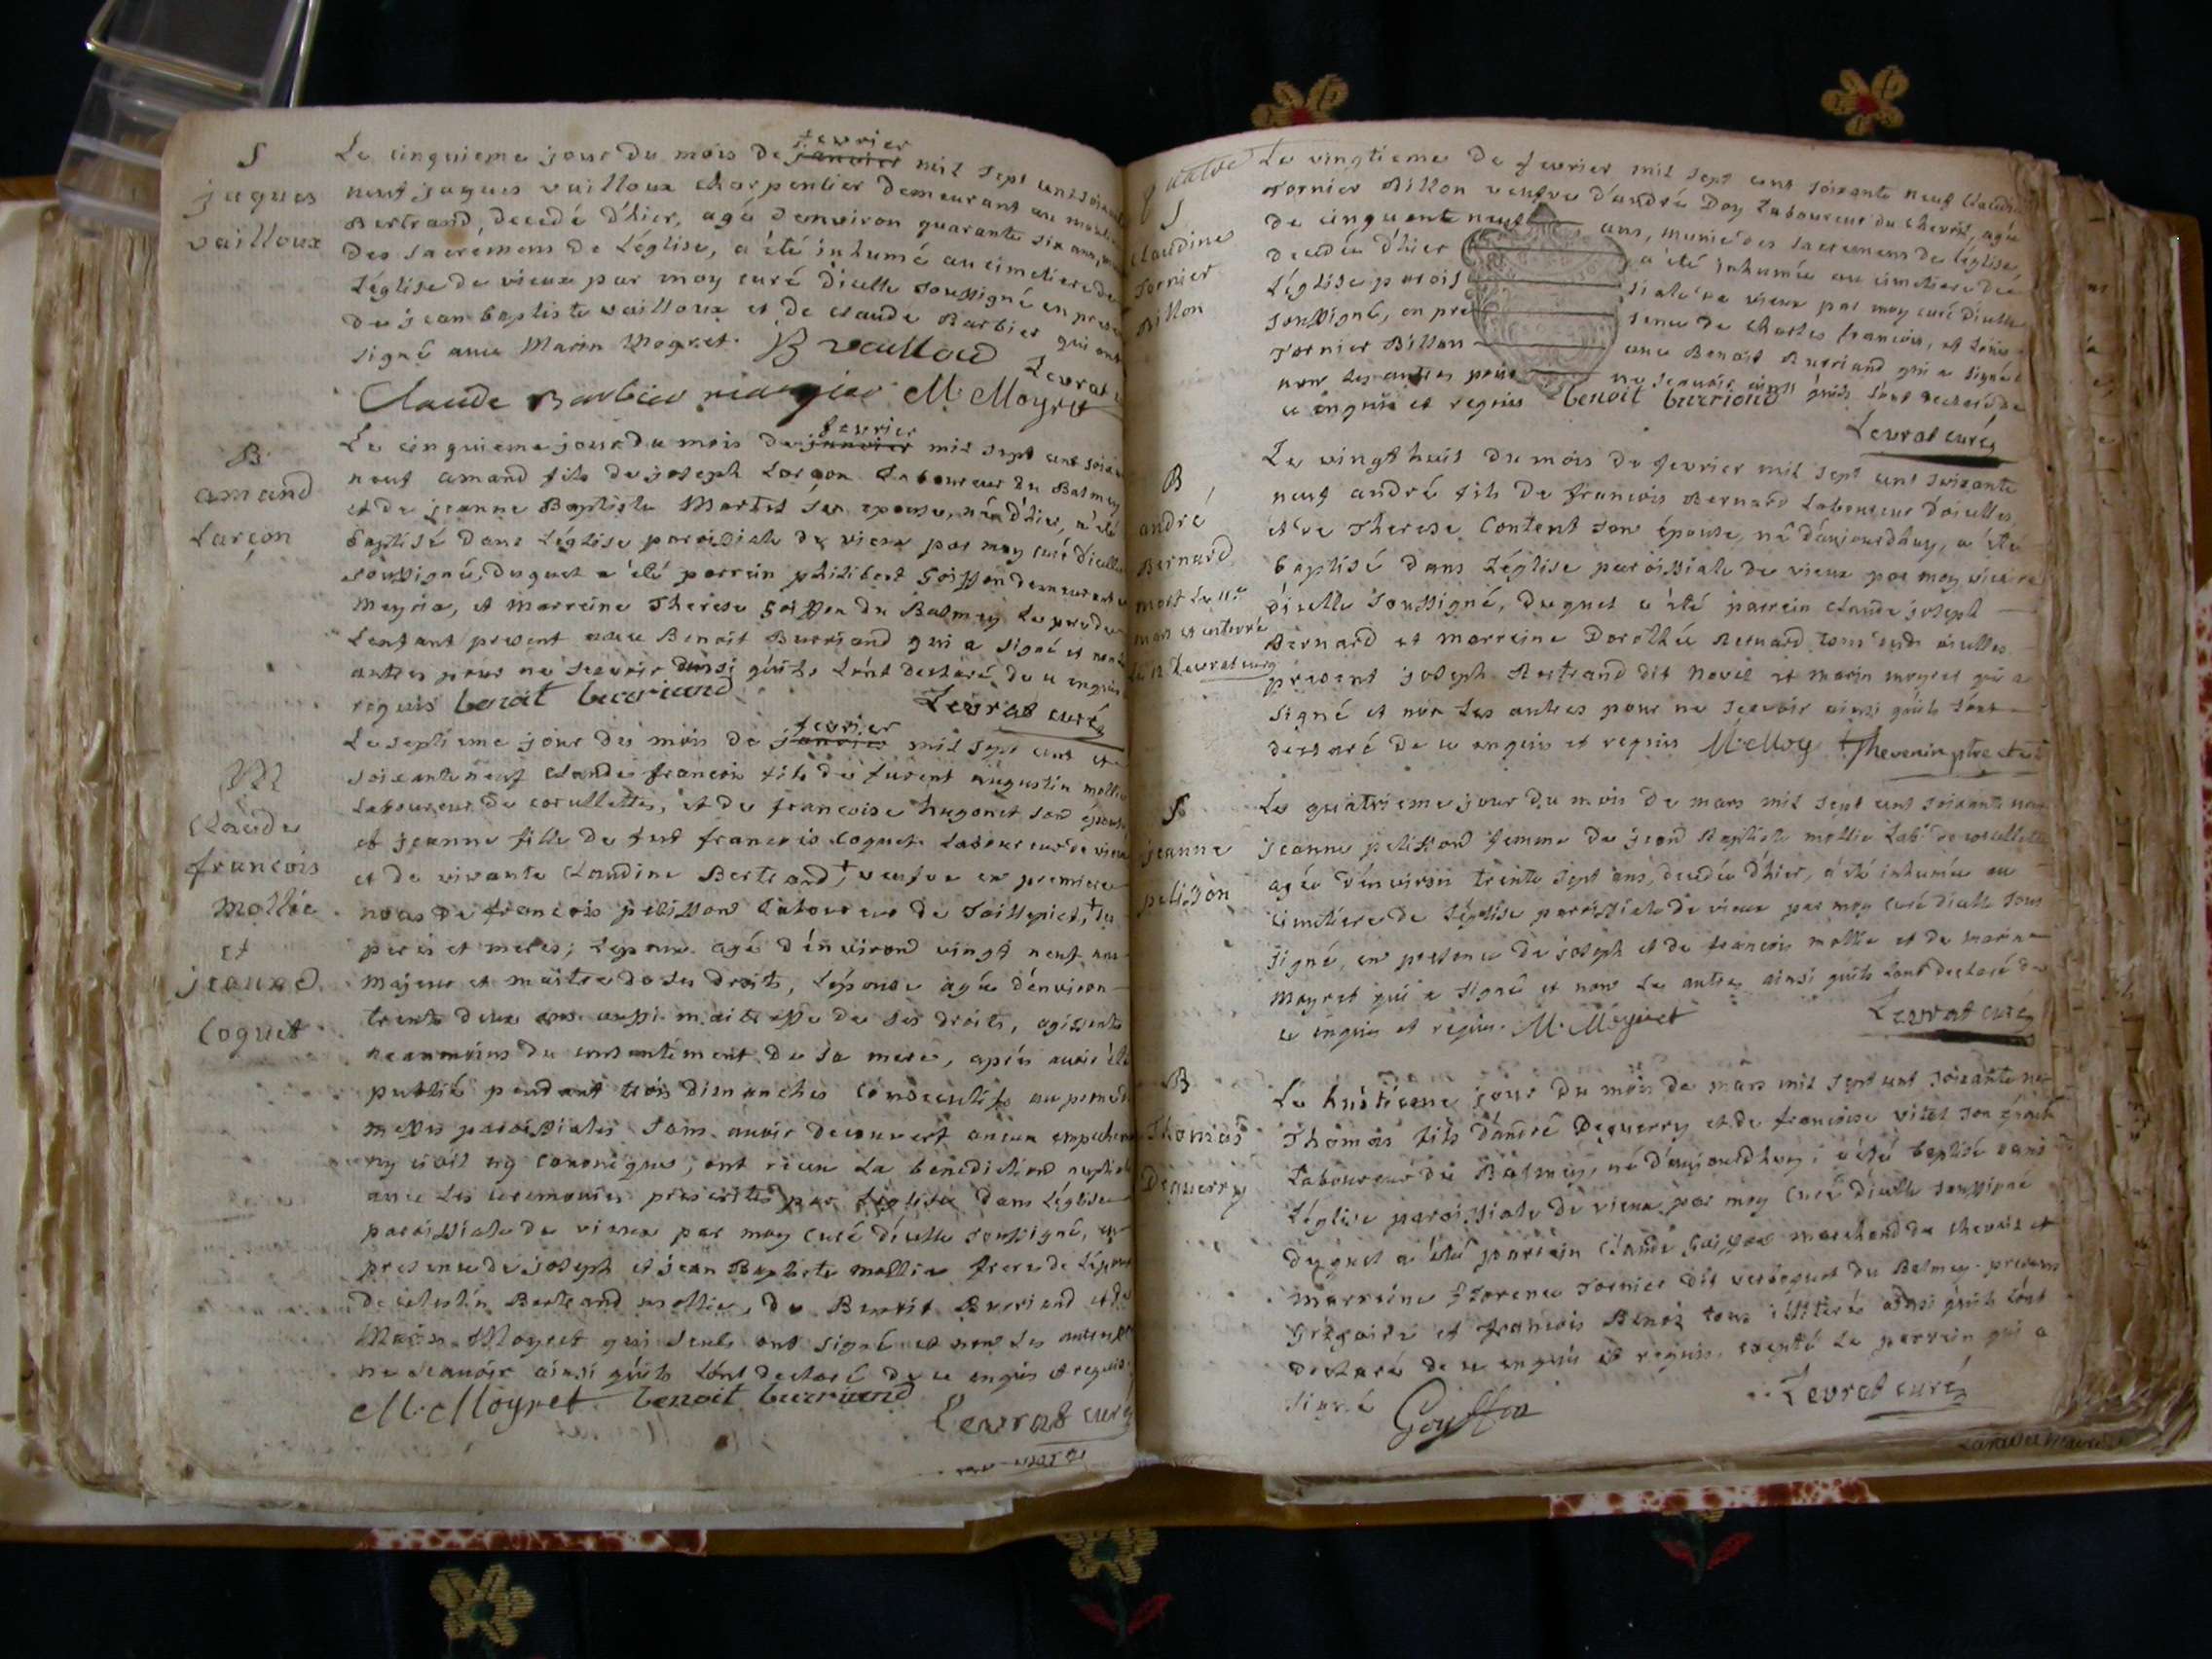 S
jaques
vailloux
Le cinquieme jour du mois de janvier fevrier mil sept cent soixante
neuf jaques vailloux charpentier demeurant au
Bertrand, decedé d'hier, agé d'environ quarante six ans,
des sacremens de L'église, a été inhumé au cimetiere de
L'église de vieux par moy curé d'icelle soussigné en presence
de jean baptiste vailloux et de claude Barbier qui ont
signé avec Marin Moyret. B vailloud Levrat
Claude Barbier M. Moyret
B
amand
Larçon
Le cinquieme jour du mois de janvier fevrier mil sept cent soixante
neuf amand fils de joseph Larçon Laboureur du Balmey
et de jeanne Baptiste Martet son epouse, né d'hier, a été
baptisé dans L'église paroissiale de vieux par moy curé d'icelle
soussigné, duquel a été parrein philibert Goiffon demeurant a
Meyria, et marreine Therese Goiffon du Balmey Le pere de
L'enfant present avec Benoit Burriand qui a signé et non les
autres pour ne sçavoir ainsi qu'ils L'ont declaré de ce enquis
requis benoit burriand Levrat curé
M
Claude
francois
Mollie
et
jeanne
Coquet
Le septieme jour du mois de janvier fevrier mil sept cent et
soixante neuf Claude francois fils de furent augustin mollie
Laboureur de corcellettes, et de francoise hugonet son epouse
et jeanne fille de feut francois Coquet Laboureur de vieux
et de vivante Claudine Bertrand, veufve en premiere
noces de francois pelisson Laboureur de
peres et meres; L'epoux agé d'environ vingt neuf ans
majeur et maitre de ses droits, L'épouse agée d'environ
trente deux ans aussi maitresse de ses droits, agissente
neanmoins du consentement de sa mere, après avoir été
publié pendant trois dimanches consecutifs au prone des
messes paroissiales sans avoir decouvert aucun empechement
ny civil ny canonique, ont recu La benediction nuptiale
avec Les ceremonies prescrites par L'eglise dans L'église
paroissiale de vieux par moy curé d'icelle soussigné, en
presence de joseph et jean Baptiste mollie frere de L'époux
de celestin Bertrand mollie, de Benoit Burriand et de
Marin Moyret qui seuls ont signé et non Les autres
ne sçavoir ainsi qu'ils L'ont declaré de ce enquis et requis.
M. Moyret benoit burriand
Levrat curé
quatre
S
Claudine
Tornier
Billon
Le vingtieme de fevrier mil sept cent soixante neuf Claudine
Tornier Billon veufve d'andré Doy Laboureur du chevril, agée
de cinquante neuf ans, munie des sacremens de L'église,
decedée d'hier a été inhumée au cimetiere de
L'église parois siale de vieux par moy curé d'icelle
soussigné, en pre sence de Charles francois, et
Tornier Billon avec Benoit Burriand qui a signé et
non Les autres pour ne sçavoir ainsi qu'ils L'ont declaré de
ce enquis et requis benoit burriand
Levrat curé
B
andré
Bernard
mort Le
mars et enterré
Le Levrat curé
Le vingt huit du mois de fevrier mil sept cent soixante
neuf andré fils de francois Bernard Laboureur d'oisselles
et de Therese Content son épouse, né d'aujourdhuy, a été
baptisé dans L'église paroissiale de vieux par moy vicaire
d'icelle soussigné, duquel a été parrein Claude joseph
Bernard et marreine Dorothée Bernard tous
present joseph Bertrand dit Novel et marin moyret qui a
signé et non Les autres pour ne sçavoir ainsi qu'ils L'ont
declaré de ce enquis et requis M. Moy Thevenin ptre
S
jeanne
pelisson
Le quatrieme jour du mois de mars mil sept cent soixante neuf
jeanne pelisson femme de jean Baptiste mollie Lab. de corcellette
agée d'environ trente sept ans, decedée d'hier, a été inhumée au
cimetiere de L'église paroissiale de vieux par moy curé d'icelle sous
signé, en presence de joseph et de francois mollie et de marin
Moyret qui a signé et non Les autres ainsi qu'ils L'ont declaré de
ce enquis et requis. M. Moyret Levrat curé
B
Thomas
Deguerry
Le huitieme jour du mois de mars mil sept cent soixante neuf
Thomas fils d'andré Deguerry et de francoise vitet son épouse
Laboureur du Balmey, né d'aujourdhuy, a été baptisé dans
L'église paroissiale de vieux par moy curé d'icelle soussigné
duquel a été parrein Claude Goiffon marchand de chevril et
marreine florence Tornier dit du Balmey. presens
Grégoire et francois Benoi tous illiterés ainsi qu'ils L'ont
declaré de ce enquis et requis, excepté Le parrein qui a
signé Goiffon Levrat curé